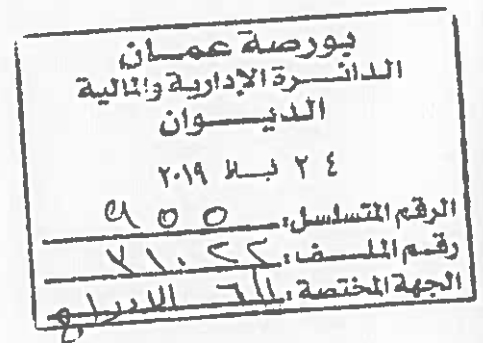 بورصة عمان
الدائرة الإدارية والمالية
الديوان
٢٤ شباط ٢٠١٩
الرقم المتسلسل:
رقم الملف:
الجهة المختصة: الادراج